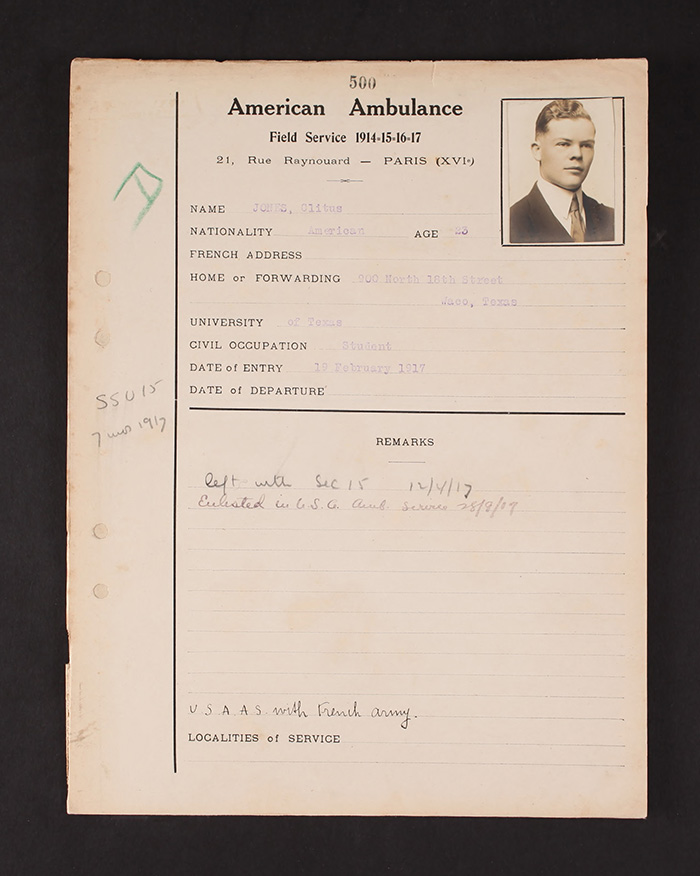 500
American Ambulance
Field Service 1914-15-16-17
21, Rue Raynouard — PARIS (XVIe)
D
NAME JONES, Clitus
NATIONALITY American AGE 23
FRENCH ADDRESS
HOME or FORWARDING 900 North 18th Street
Waco, Texas
UNIVERSITY of Texas
CIVIL OCCUPATION Student
DATE of ENTRY 19 February 1917
DATE of DEPARTURE
SSU 15
7 mos 1917
REMARKS
left with Sec 15 12/4/17
Enlisted in U.S.A. Amb. Service 28/9/17
U S A A S with French army.
LOCALITIES of SERVICE